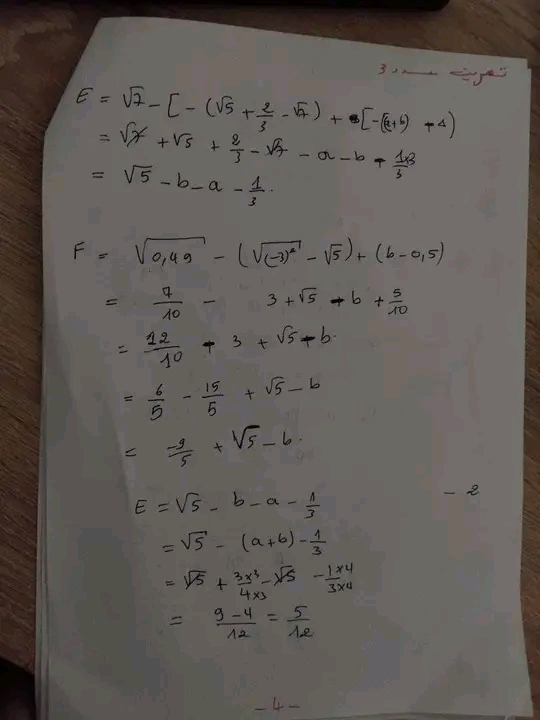 تمرين عدد 3
E = √7 - [ - (√5 + 2/3 - √7) + [-(a+b) - 1)
= √7 + √5 + 2/3 - √7 - a - b - 1×3/3
= √5 - b - a - 1/3.
F = √0,49 - (√(-3)² - √5) + (b - 0,5)
= 7/10 - 3 + √5 - b + 5/10
= 12/10 - 3 + √5 - b.
= 6/5 - 15/5 + √5 - b
= -9/5 + √5 - b.
- 2
E = √5 - b - a - 1/3
= √5 - (a+b) - 1/3
= √5 + 3×3/4×3 - √5 - 1×4/3×4
= 9-4/12 = 5/12
- 4 -